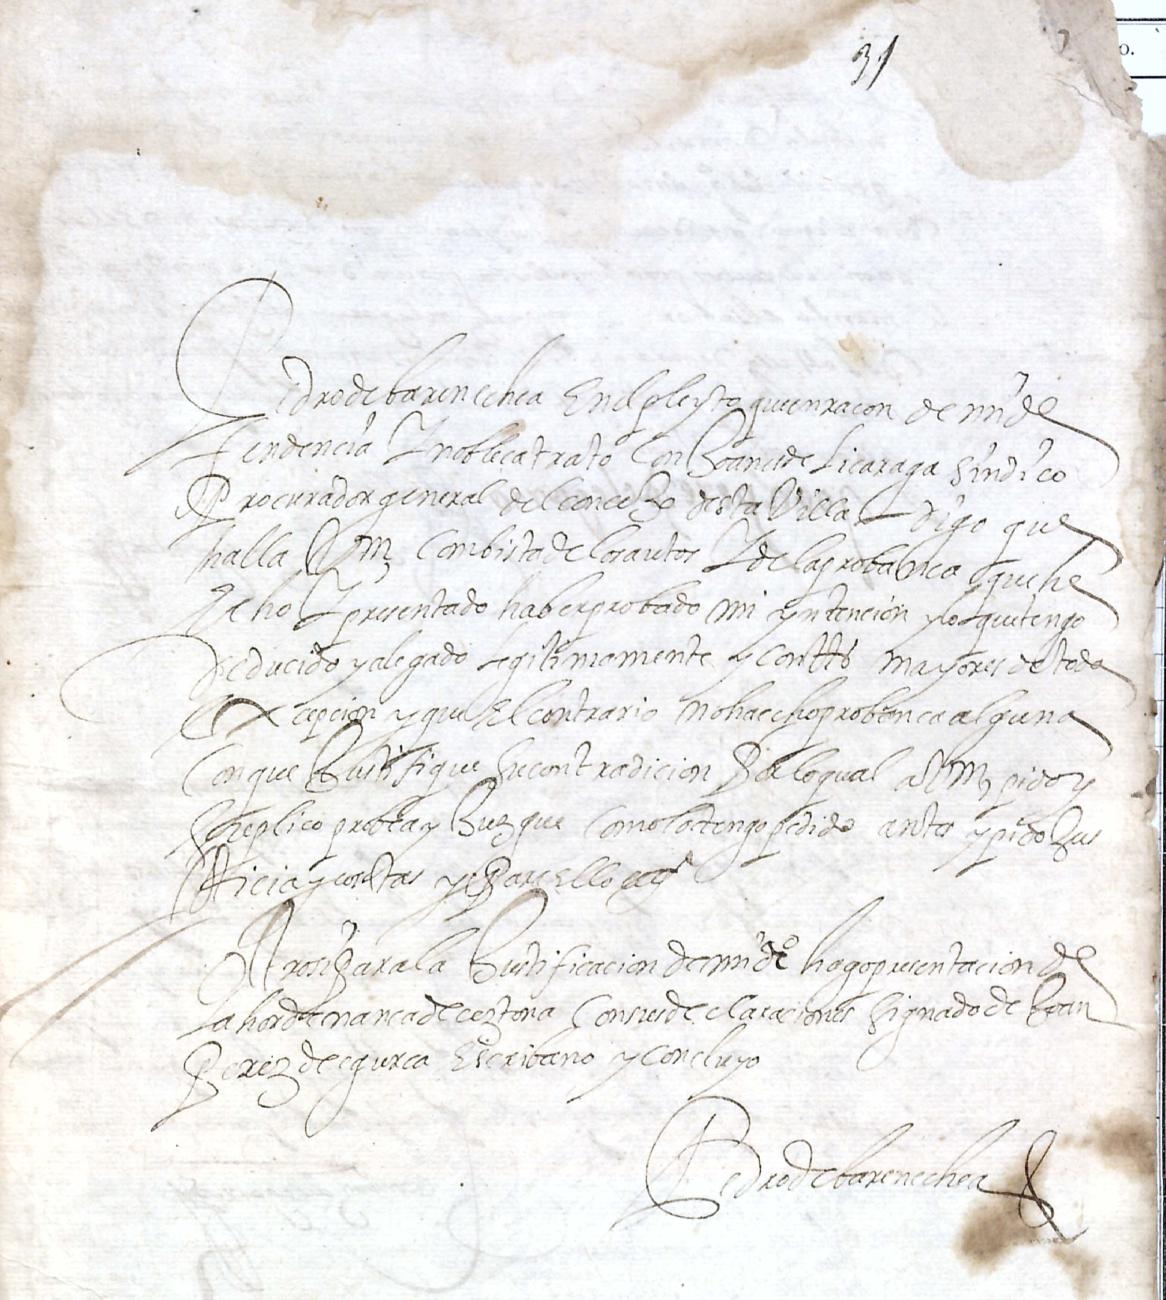 31
Pedro de barenechea En el pleyto que en raçon de mi de
çendençia Y nobleca trato Con Joanes de Licaraga sindico
Procurador general del conceJo desta Villa Digo que
halla V m Con bista de los autos Y de la probanca que he
hecho Y presentado haber probado mi yntençion y lo que tengo
Deducido y alegado Legitimamente y con tts mayores de toda
Excepçion y que El contrario no ha echo probanca alguna
Con que Justifique su contradicion Por lo qual a V m pido y
suplico probea y Juzgue Como lo tengo pedido antes y pido Jus
ticia y costas y para ello etª
Otrosi Para la Justificacion de mi dro hago presentacion de
La hordenança de cestona Con sus declaraciones signado de Joan
Perez de egurca Escribano y concluyo
Pedro de barenechea
o.